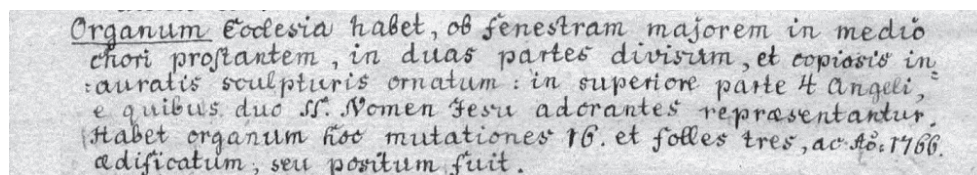 Organum Ecclesia habet, ob fenestram majorem in medio
chori prostantem, in duas partes divisum, et copiosis in=
:auratis sculpturis ornatum: in superiore parte 4 Angeli,
e quibus duo SS. Nomen Jesu adorantes repræsentantur.
Habet organum hoc mutationes 16. et folles tres, ac Aõ: 1766.
ædificatum, seu positum fuit.